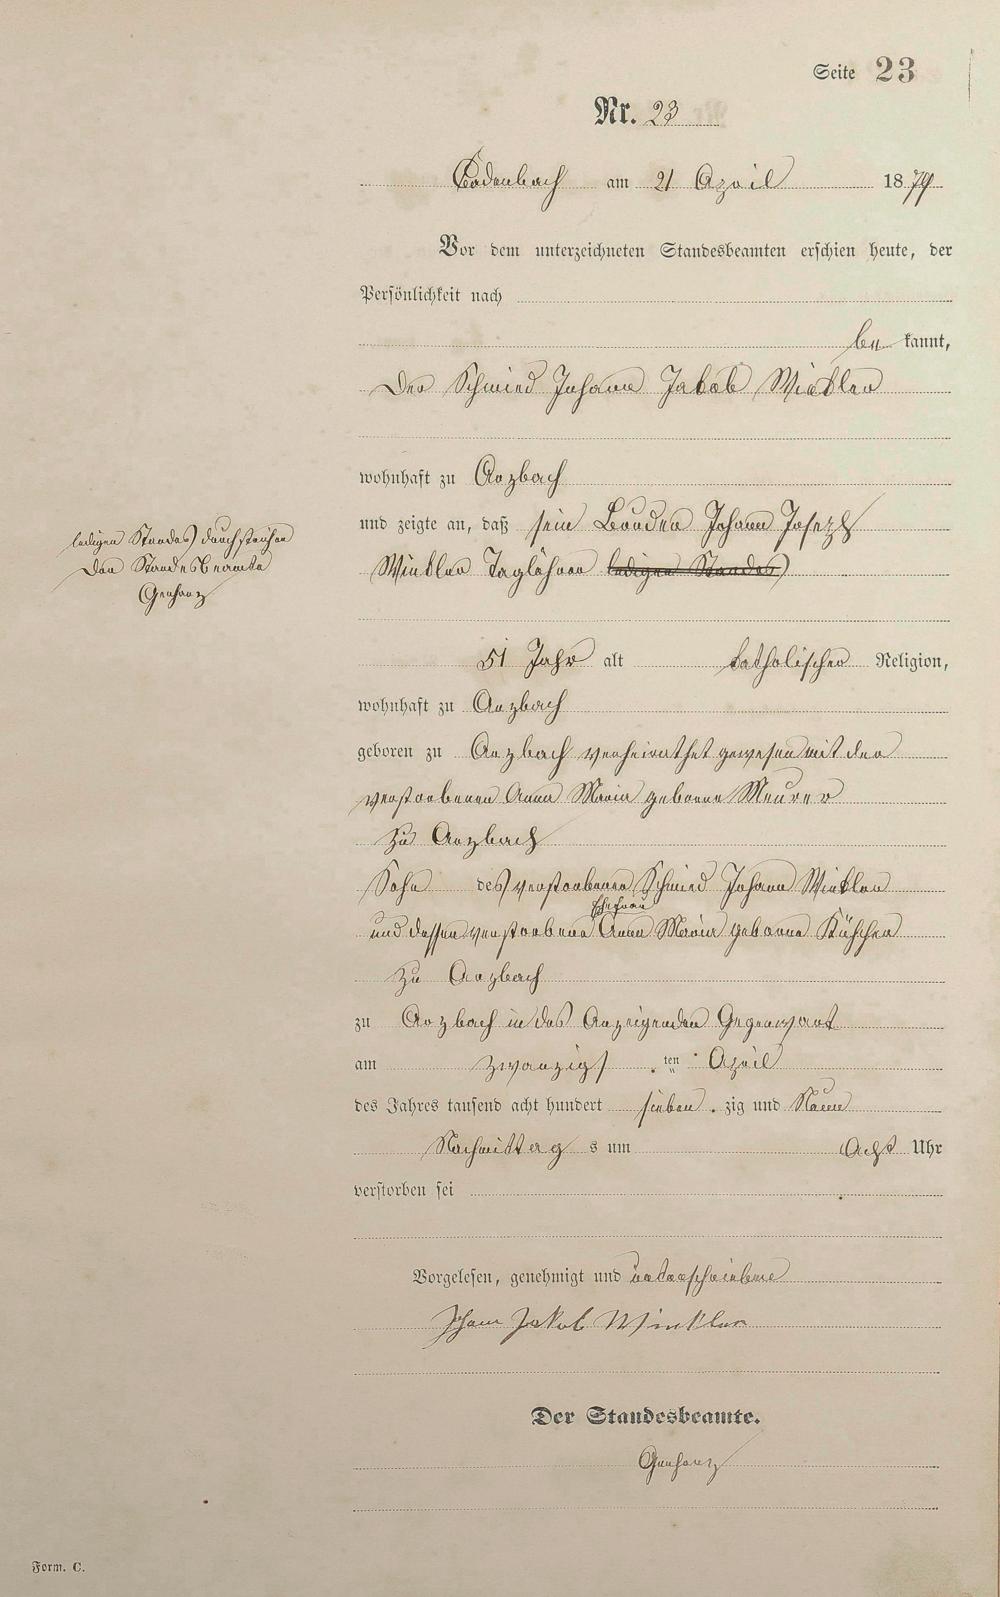 Seite 23
Nr. 23
Cadenbach am 21 April 1879
Vor dem unterzeichneten Standesbeamten erschien heute, der
Persönlichkeit nach
be kannt,
der Schmied Johann Jakob Winkler
wohnhaft zu Arzbach
und zeigte an, daß sein Bruder Johann Joseph
Winkler Taglöhner ledigen Standes
ledigen Standes durchstrichen
Der Standesbeamte
51 Jahr alt katholischer Religion,
wohnhaft zu Arzbach
geboren zu Arzbach verheirathet gewesen mit der
verstorbenen Anna Maria geborne Meurer
zu Arzbach
Sohn des verstorbenen Schmied Johann Winkler
Ehefrau
und dessen verstorbene Anna Maria geborne
zu Arzbach
zu Arzbach in des Anzeigenden Gegenwart
am zwanzigs ten April
des Jahres tausend acht hundert sieben zig und Neun
Nachmittag s um Acht Uhr
verstorben sei
Vorgelesen, genehmigt und unterschrieben
Johann Jakob Winkler
Der Standesbeamte.
Form. C.